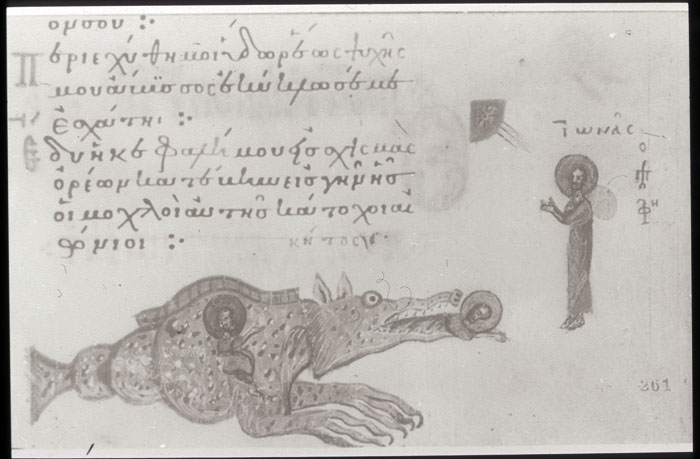 ον σου :·
Περιεχύθη μοι ὕδωρ ἕως ψυχῆς
μου ἄβυσσος ἐκύκλωσέ με
ἐσχάτηι :·
Ἔδυ ἡ κεφαλή μου εἰς σχισμὰς
ὀρέων κατέβην εἰς γῆν ἧς
οἱ μοχλοὶ αὐτῆς κάτοχοι αἰ
ώνιοι :·
κῆτος
Ἰωνᾶς
ὁ